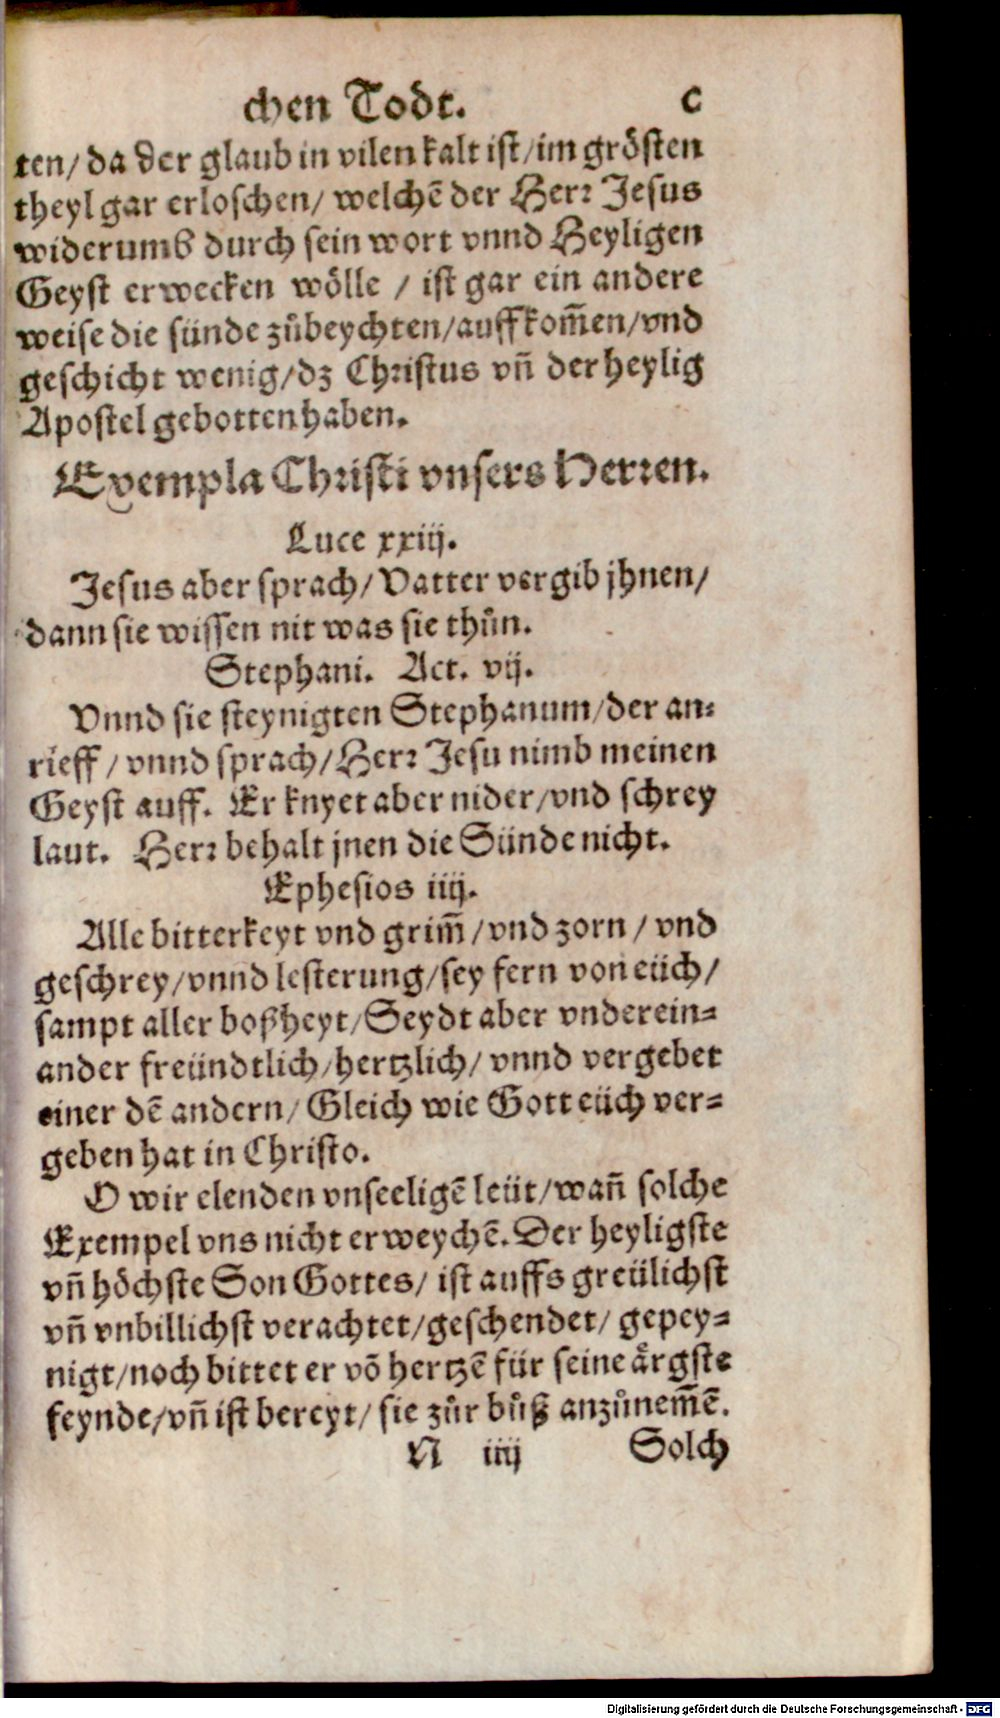 chen Todt. C
ten/ da der glaub in vilen kalt ist/ im grösten
theyl gar erloschen/ welchẽ der Herr Jesus
widerumb durch sein wort vnnd Heyligen
Geyst erwecken wölle / ist gar ein andere
weise die sünde zůbeychten/ auffkom̃en/ vnd
geschicht wenig/ dz Christus vñ der heylig
Apostel gebotten haben.
Exempla Christi vnsers Herren.
Luce xxiij.
Jesus aber sprach/ Vatter vergib jhnen/
dann sie wissen nit was sie thůn.
Stephani. Act. vij.
Vnnd sie steynigten Stephanum/ der an⸗
rieff / vnnd sprach/ Herr Jesu nimb meinen
Geyst auff. Er knyet aber nider/ vnd schrey
laut. Herr behalt jnen die Sünde nicht.
Ephesios iiij.
Alle bitterkeyt vnd grim̃ / vnd zorn / vnd
geschrey/ vnnd lesterung/ sey fern von eüch/
sampt aller boßheyt/ Seydt aber vnderein⸗
ander freündtlich/ hertzlich/ vnnd vergebet
einer dẽ andern/ Gleich wie Gott eüch ver⸗
geben hat in Christo.
O wir elenden vnseeligẽ leüt/ wañ solche
Exempel vns nicht erweychẽ. Der heyligste
vñ höchste Son Gottes/ ist auffs greülichst
vñ vnbillichst verachtet/ geschendet/ gepey⸗
nigt/ noch bittet er võ hertzẽ für seine ärgste
feynde/ vñ ist bereyt/ sie zůr bůß anzůnem̃ẽ.
N iiij Solch
Digitalisierung gefördert durch die Deutsche Forschungsgemeinschaft - DFG